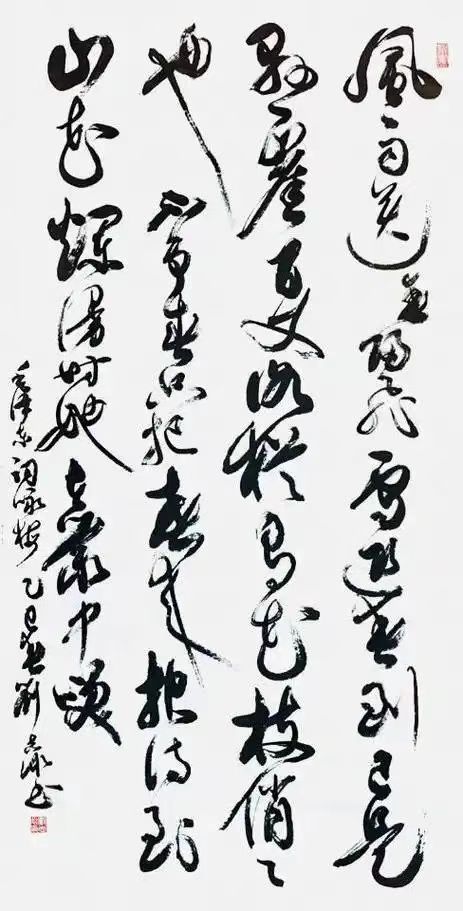 風雨送春歸飛雪迎春到已是
懸崖百丈冰猶有花枝俏々
也不爭春只把春來報待到
山花爛漫時她在叢中笑
毛澤東詞詠梅乙巳劉书